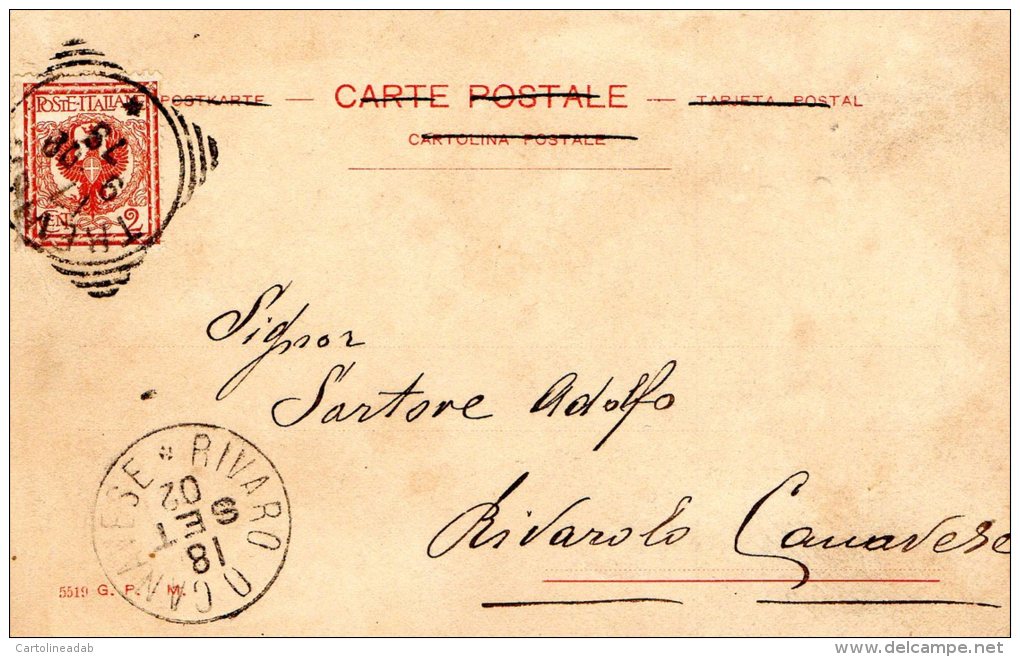 POSTKARTE — CARTE POSTALE — TARJETA POSTAL
CARTOLINA POSTALE
POSTE·ITALIANE
2
Signor
Sartore Adolfo
Rivarolo Canavese
RIVAROLO CANAVESE
18 SET 02
5519 G. P. M.
Cartolineadab
delcampe.net